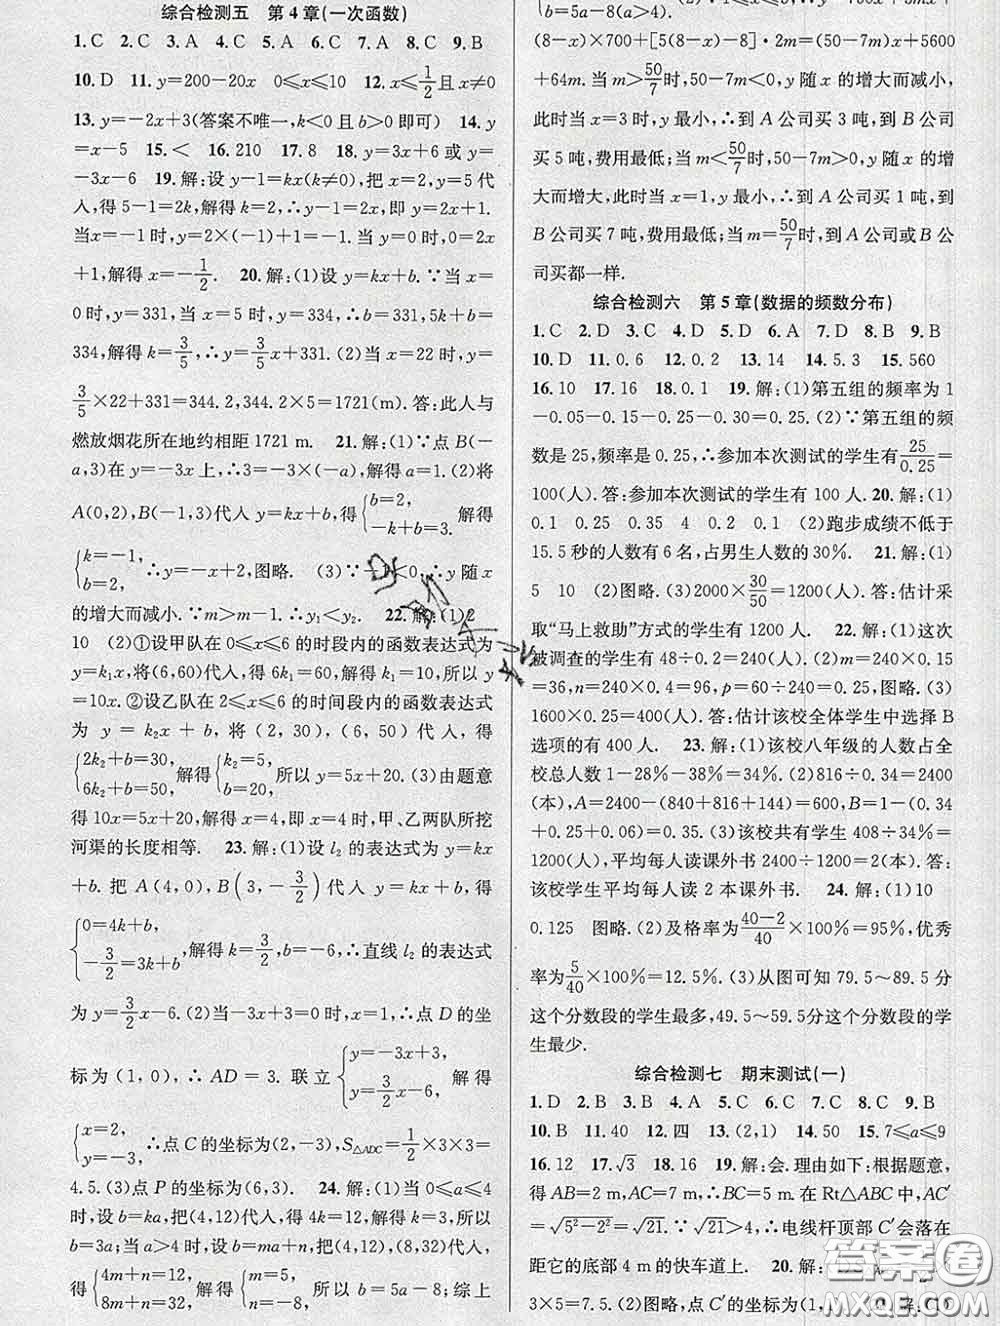 综合检测五 第4章(一次函数)
1.C 2.C 3.A 4.C 5.A 6.C 7.A 8.C 9.B
10.D 11.y=200-20x 0≤x≤10 12.x≤1/2且x≠0
13.y=-2x+3(答案不唯一,k<0且b>0即可) 14.y
=x-5 15.< 16.210 17.8 18.y=3x+6或y=
-3x-6 19.解:设y-1=kx(k≠0),把x=2,y=5代
入,得5-1=2k,解得k=2,∴y-1=2x,即y=2x+1.
当x=-1时,y=2×(-1)+1=-1.当y=0时,0=2x
+1,解得x=-1/2. 20.解:(1)设y=kx+b.∵当x=
0时,y=331,当x=5时,y=334,∴b=331,5k+b=
334,解得k=3/5,∴y=3/5x+331.(2)当x=22时,y=
3/5×22+331=344.2,344.2×5=1721(m).答:此人与
燃放烟花所在地约相距1721 m. 21.解:(1)∵点B(-
a,3)在y=-3x上,∴3=-3×(-a),解得a=1.(2)将
A(0,2),B(-1,3)代入y=kx+b,得{b=2, -k+b=3. 解得
{k=-1, b=2, ∴y=-x+2,图略. (3)∵-1<0,∴y随x
的增大而减小.∵m>m-1.∴y₁<y₂. 22.解:(1)2
10 (2)①设甲队在0≤x≤6的时段内的函数表达式为
y=k₁x,将(6,60)代入,得6k₁=60,解得k₁=10,所以y
=10x.②设乙队在2≤x≤6的时间段内的函数表达式
为y=k₂x+b,将(2,30),(6,50)代入,得
{2k₂+b=30, 6k₂+b=50, 解得{k₂=5, b=20, 所以y=5x+20.(3)由题意
得10x=5x+20,解得x=4,即x=4时,甲、乙两队所挖
河渠的长度相等. 23.解:(1)设l₂的表达式为y=kx
+b.把A(4,0),B(3,-3/2)代入y=kx+b,得
{0=4k+b, -3/2=3k+b, 解得k=3/2,b=-6,∴直线l₂的表达式
为y=3/2x-6.(2)当-3x+3=0时,x=1,∴点D的坐
标为(1,0),∴AD=3.联立{y=-3x+3, y=3/2x-6, 解得
{x=2, y=-3, ∴点C的坐标为(2,-3),S△ADC=1/2×3×3=
4.5.(3)点P的坐标为(6,3). 24.解:(1)当0≤a≤4
时,设b=ka,把(4,12)代入,得4k=12,解得k=3,所以
b=3a;当a>4时,设b=ma+n,把(4,12),(8,32)代入,
得{4m+n=12, 8m+n=32, 解得{m=5, n=-8, 所以b=5a-8;综上
b=5a-8(a>4).
(8-x)×700+[5(8-x)-8]·2m=(50-7m)x+5600
+64m.当m>50/7时,50-7m<0,y随x的增大而减小,
此时当x=3时,y最小,∴到A公司买3吨,到B公司
买5吨,费用最低;当m<50/7时,50-7m>0,y随x的增
大而增大,此时当x=1时,y最小,∴到A公司买1吨,到
B公司买7吨,费用最低;当m=50/7时,到A公司或B公
司买都一样.
综合检测六 第5章(数据的频数分布)
1.C 2.D 3.C 4.D 5.D 6.A 7.D 8.B 9.B
10.D 11.0.6 12.0.2 13.14 14.5.3 15.560
16.10 17.16 18.0.1 19.解:(1)第五组的频率为1
-0.05-0.15-0.25-0.30=0.25.(2)∵第五组的频
数是25,频率是0.25,∴参加本次测试的学生有25/0.25=
100(人).答:参加本次测试的学生有100人.20.解:(1)
0.1 0.25 4 6 0.2 0.1 (2)跑步成绩不低于
15.5秒的人数有6名,占男生人数的30%. 21.解:(1)
5 10 (2)图略.(3)2000×30/50=1200(人).答:估计采
取“马上救助”方式的学生有1200人. 22.解:(1)这次
被调查的学生有48÷0.2=240(人).(2)m=240×0.15
=36,n=240×0.4=96,p=60÷240=0.25,图略.(3)
1600×0.25=400(人).答:估计该校全体学生中选择B
选项的有400人. 23.解:(1)该校八年级的人数占全
校总人数1-28%-38%=34%.(2)816÷0.34=2400
(本),A=2400-(840+816+144)=600,B=1-(0.34
+0.25+0.06)=0.35.(3)该校共有学生408÷34%=
1200(人),平均每人读课外书2400÷1200=2(本).答:
该校学生平均每人读2本课外书. 24.解:(1)10
0.125 图略.(2)及格率为(40-2)/40×100%=95%,优秀
率为5/40×100%=12.5%.(3)从图可知79.5~89.5分
这个分数段的学生最多,49.5~59.5分这个分数段的学
生最少.
综合检测七 期末测试(一)
1.D 2.B 3.B 4.A 5.C 6.C 7.C 8.C 9.B
10.B 11.40 12.四 13.(2,1) 14.50 15.7≤a≤9
16.12 17.√3 18.16 19.解:会.理由如下:根据题意,
得AB=2 m,AC=7 m,∴BC=5 m.在Rt△ABC中,AC′
=√(5²-2²)=√21.∵√21>4,∴电线杆顶部C′会落在
距它的底部4 m的快车道上. 20.解:
3×5=7.5.(2)图略,点C′的坐标为(1,
答案圈
MXQE.COM